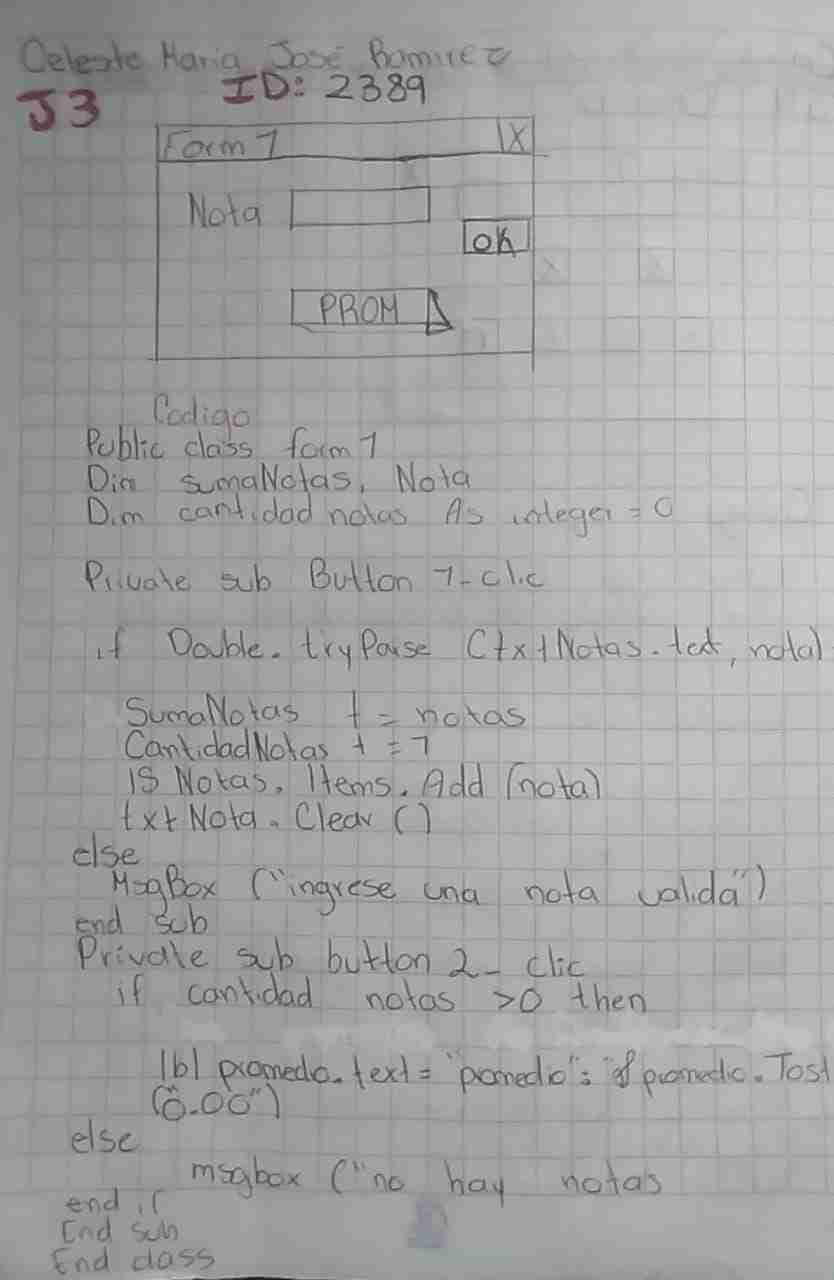 Celeste Maria José Ramirez
J3 ID: 2389
Form 1 X
Nota
OK
PROM
Codigo
Public class form 1
Dim sumaNotas, Nota
Dim cantidad notas As integer = 0
Private sub Button 1_clic
if Double. tryParse (txtNotas.text, nota)
SumaNotas += notas
CantidadNotas += 1
lS Notas. Items. Add (nota)
txt Nota. Clear ()
else
MsgBox ("ingrese una nota valida")
end sub
Private sub button 2_ clic
if cantidad notas >0 then
lbl promedo.text= "promedio": & promedio. Tost
("0.00")
else
msgbox ("no hay notas
end if
End sub
End class